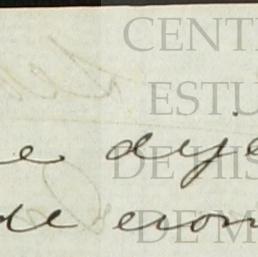 CENT
ESTU
DE HIS
DE M
e dije
de con